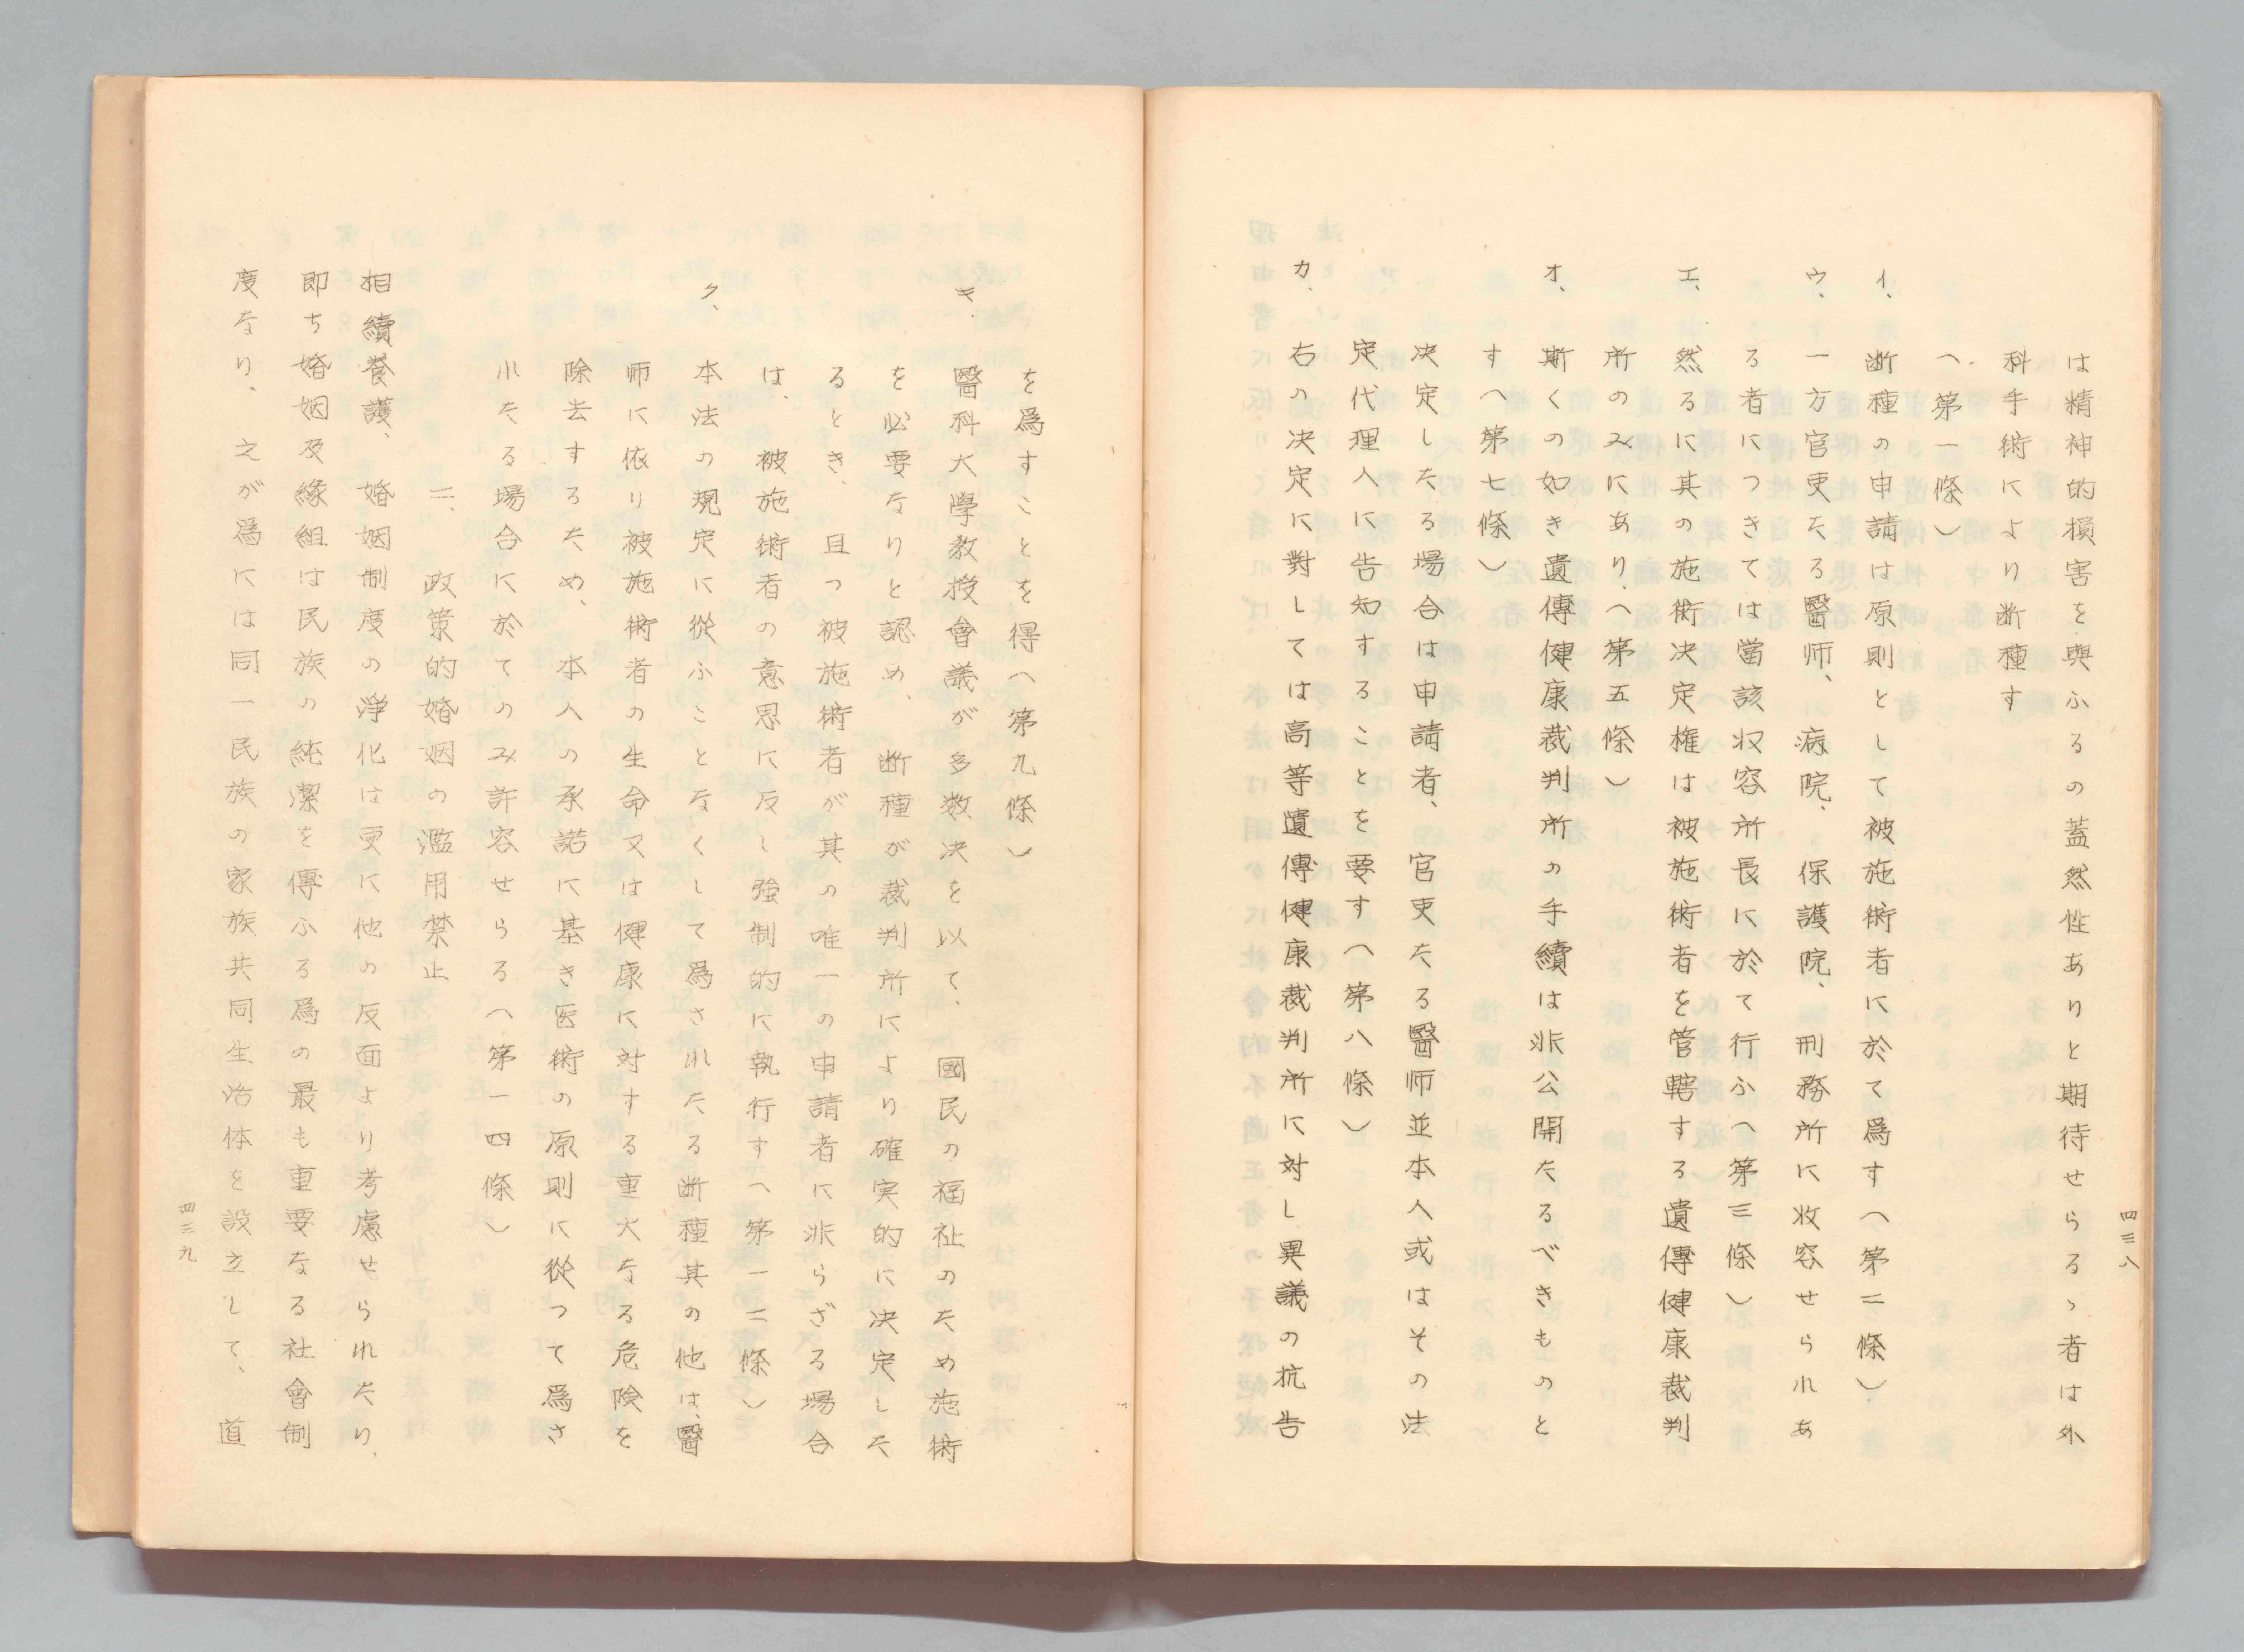 四三八
は精神的損害を與ふるの蓋然性ありと期待せらるゝ者は外
科手術により断種す
(第一條)
イ、断種の申請は原則として被施術者に於て爲す(第二條)
ウ、一方官吏たる醫师、病院、保護院、刑務所に收容せられあ
る者につきては當該収容所長に於て行ふ(第三條)
エ、然るに其の施術决定権は被施術者を管轄する遺傳健康裁判
所のみにあり、(第五條)
オ、斯くの如き遺傳健康裁判所の手續は非公開たるべきものと
す(第七條)
决定したる場合は申請者、官吏たる醫师並本人或はその法
定代理人に告知することを要す(第八條)
カ、右の决定に對しては高等遺傳健康裁判所に対し異議の抗告
を爲すことを得(第九條)
キ、醫科大學教授會議が多数决を以て、國民の福祉のため施術
を必要なりと認め、断種が裁判所により確実的に决定した
るとき、且つ被施術者が其の唯一の申請者に非らざる場合
は、被施術者の意思に反し強制的に執行す(第一二條)
ク、本法の規定に從ふことなくして爲されたる断種其の他は、醫
师に依り被施術者の生命又は健康に対する重大なる危険を
除去するため、本人の承諾に基き医術の原則に從つて爲さ
れたる場合に於てのみ許容せらる(第一四條)
三、政策的婚姻の濫用禁止
相續養護、婚姻制度の淨化は更に他の反面より考慮せられたり、
即ち婚姻及緣組は民族の純潔を傳ふる爲の最も重要なる社會制
度なり、之が爲には同一民族の家族共同生活体を設立して、道
四三九